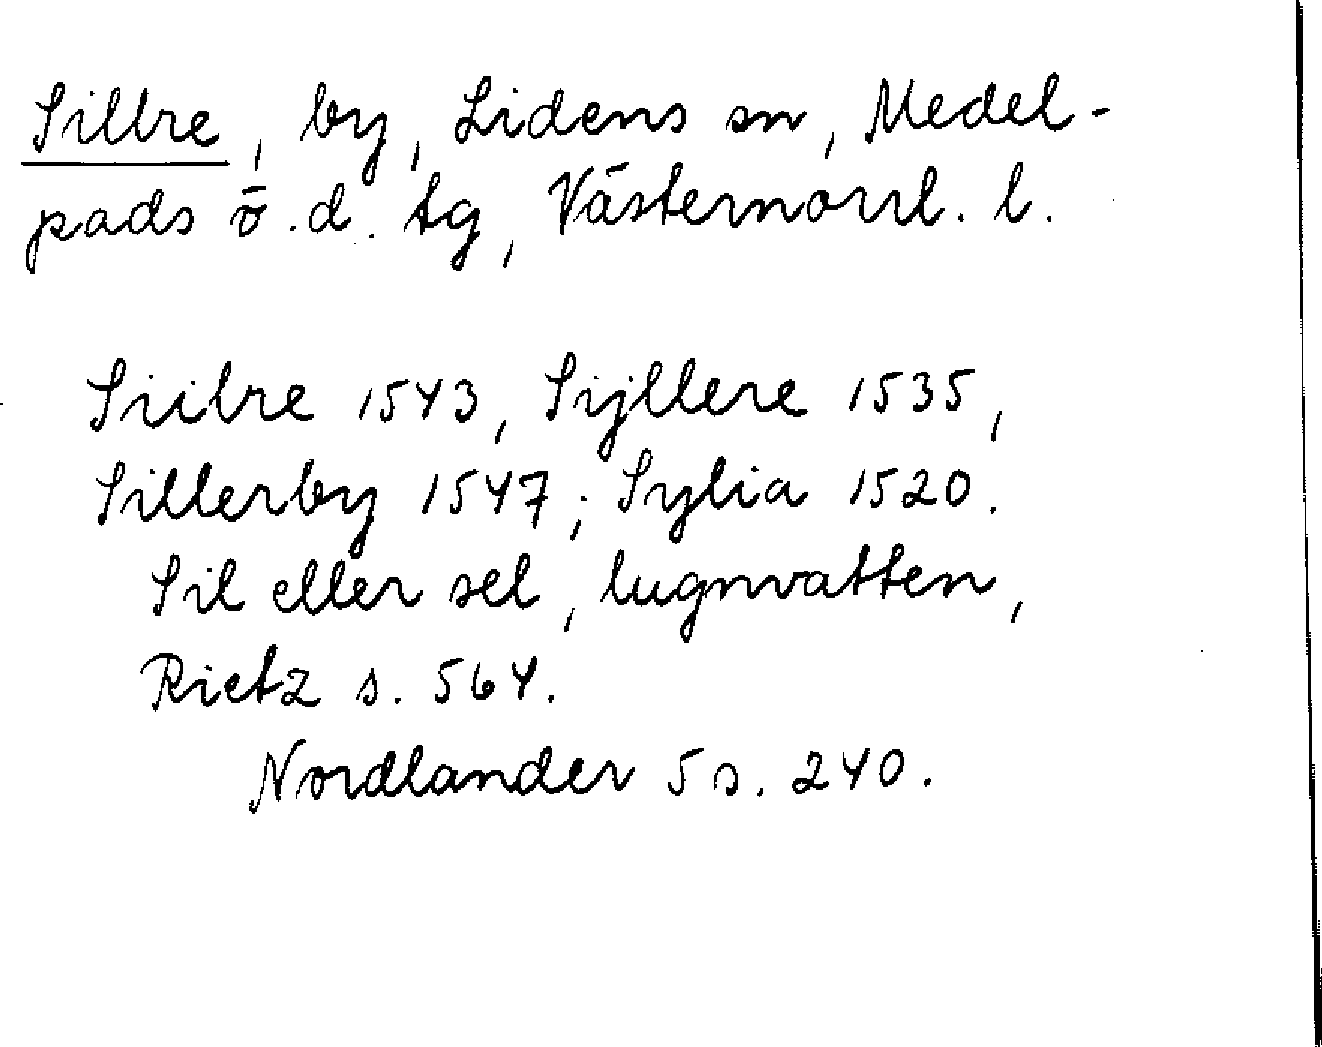 Sillre, by, Lidens sn, Medel-
pads ö.d. tg, Västernorrl. l.
Siilre 1543, Sijllere 1535,
Sillerby 1547; Sylia 1520.
Sil eller sel, lugnvatten,
Rietz s. 564.
Nordlander 5 s. 240.